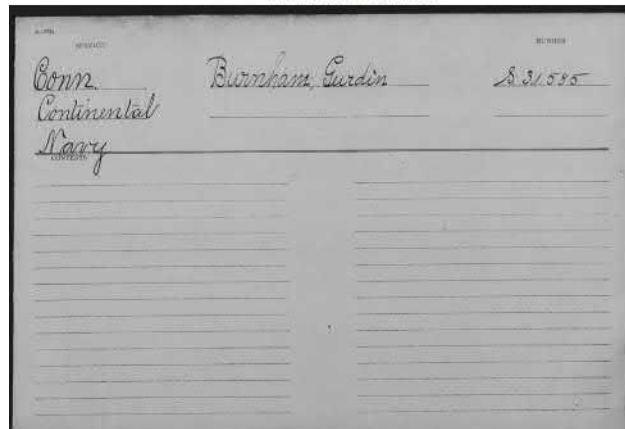 SERVICE
NUMBER
Conn. Burnham, Gurdin S. 31.595
Continental
Navy
CONTENTS